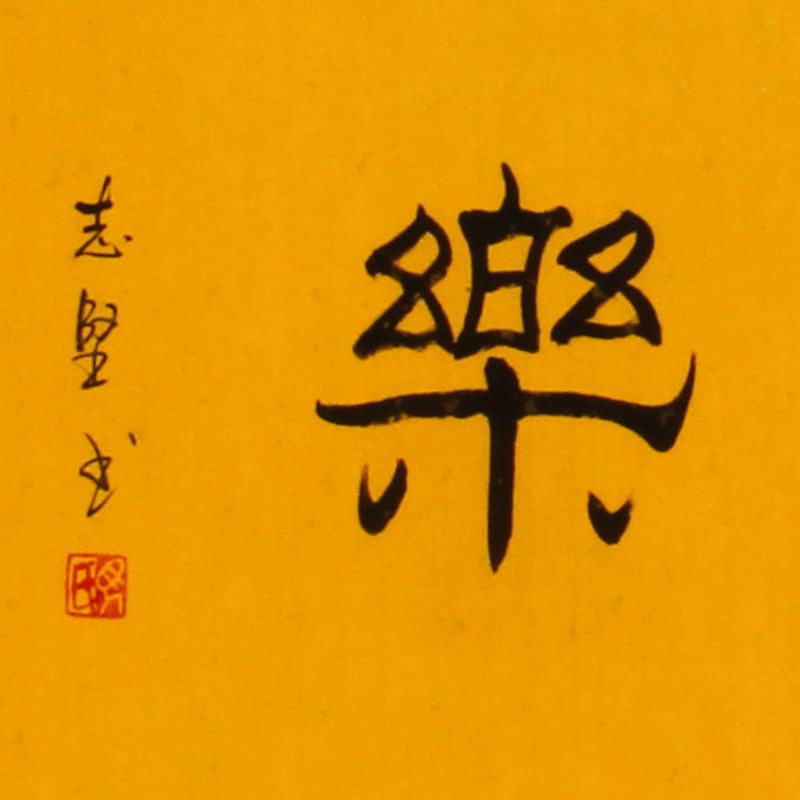 樂
志堅书